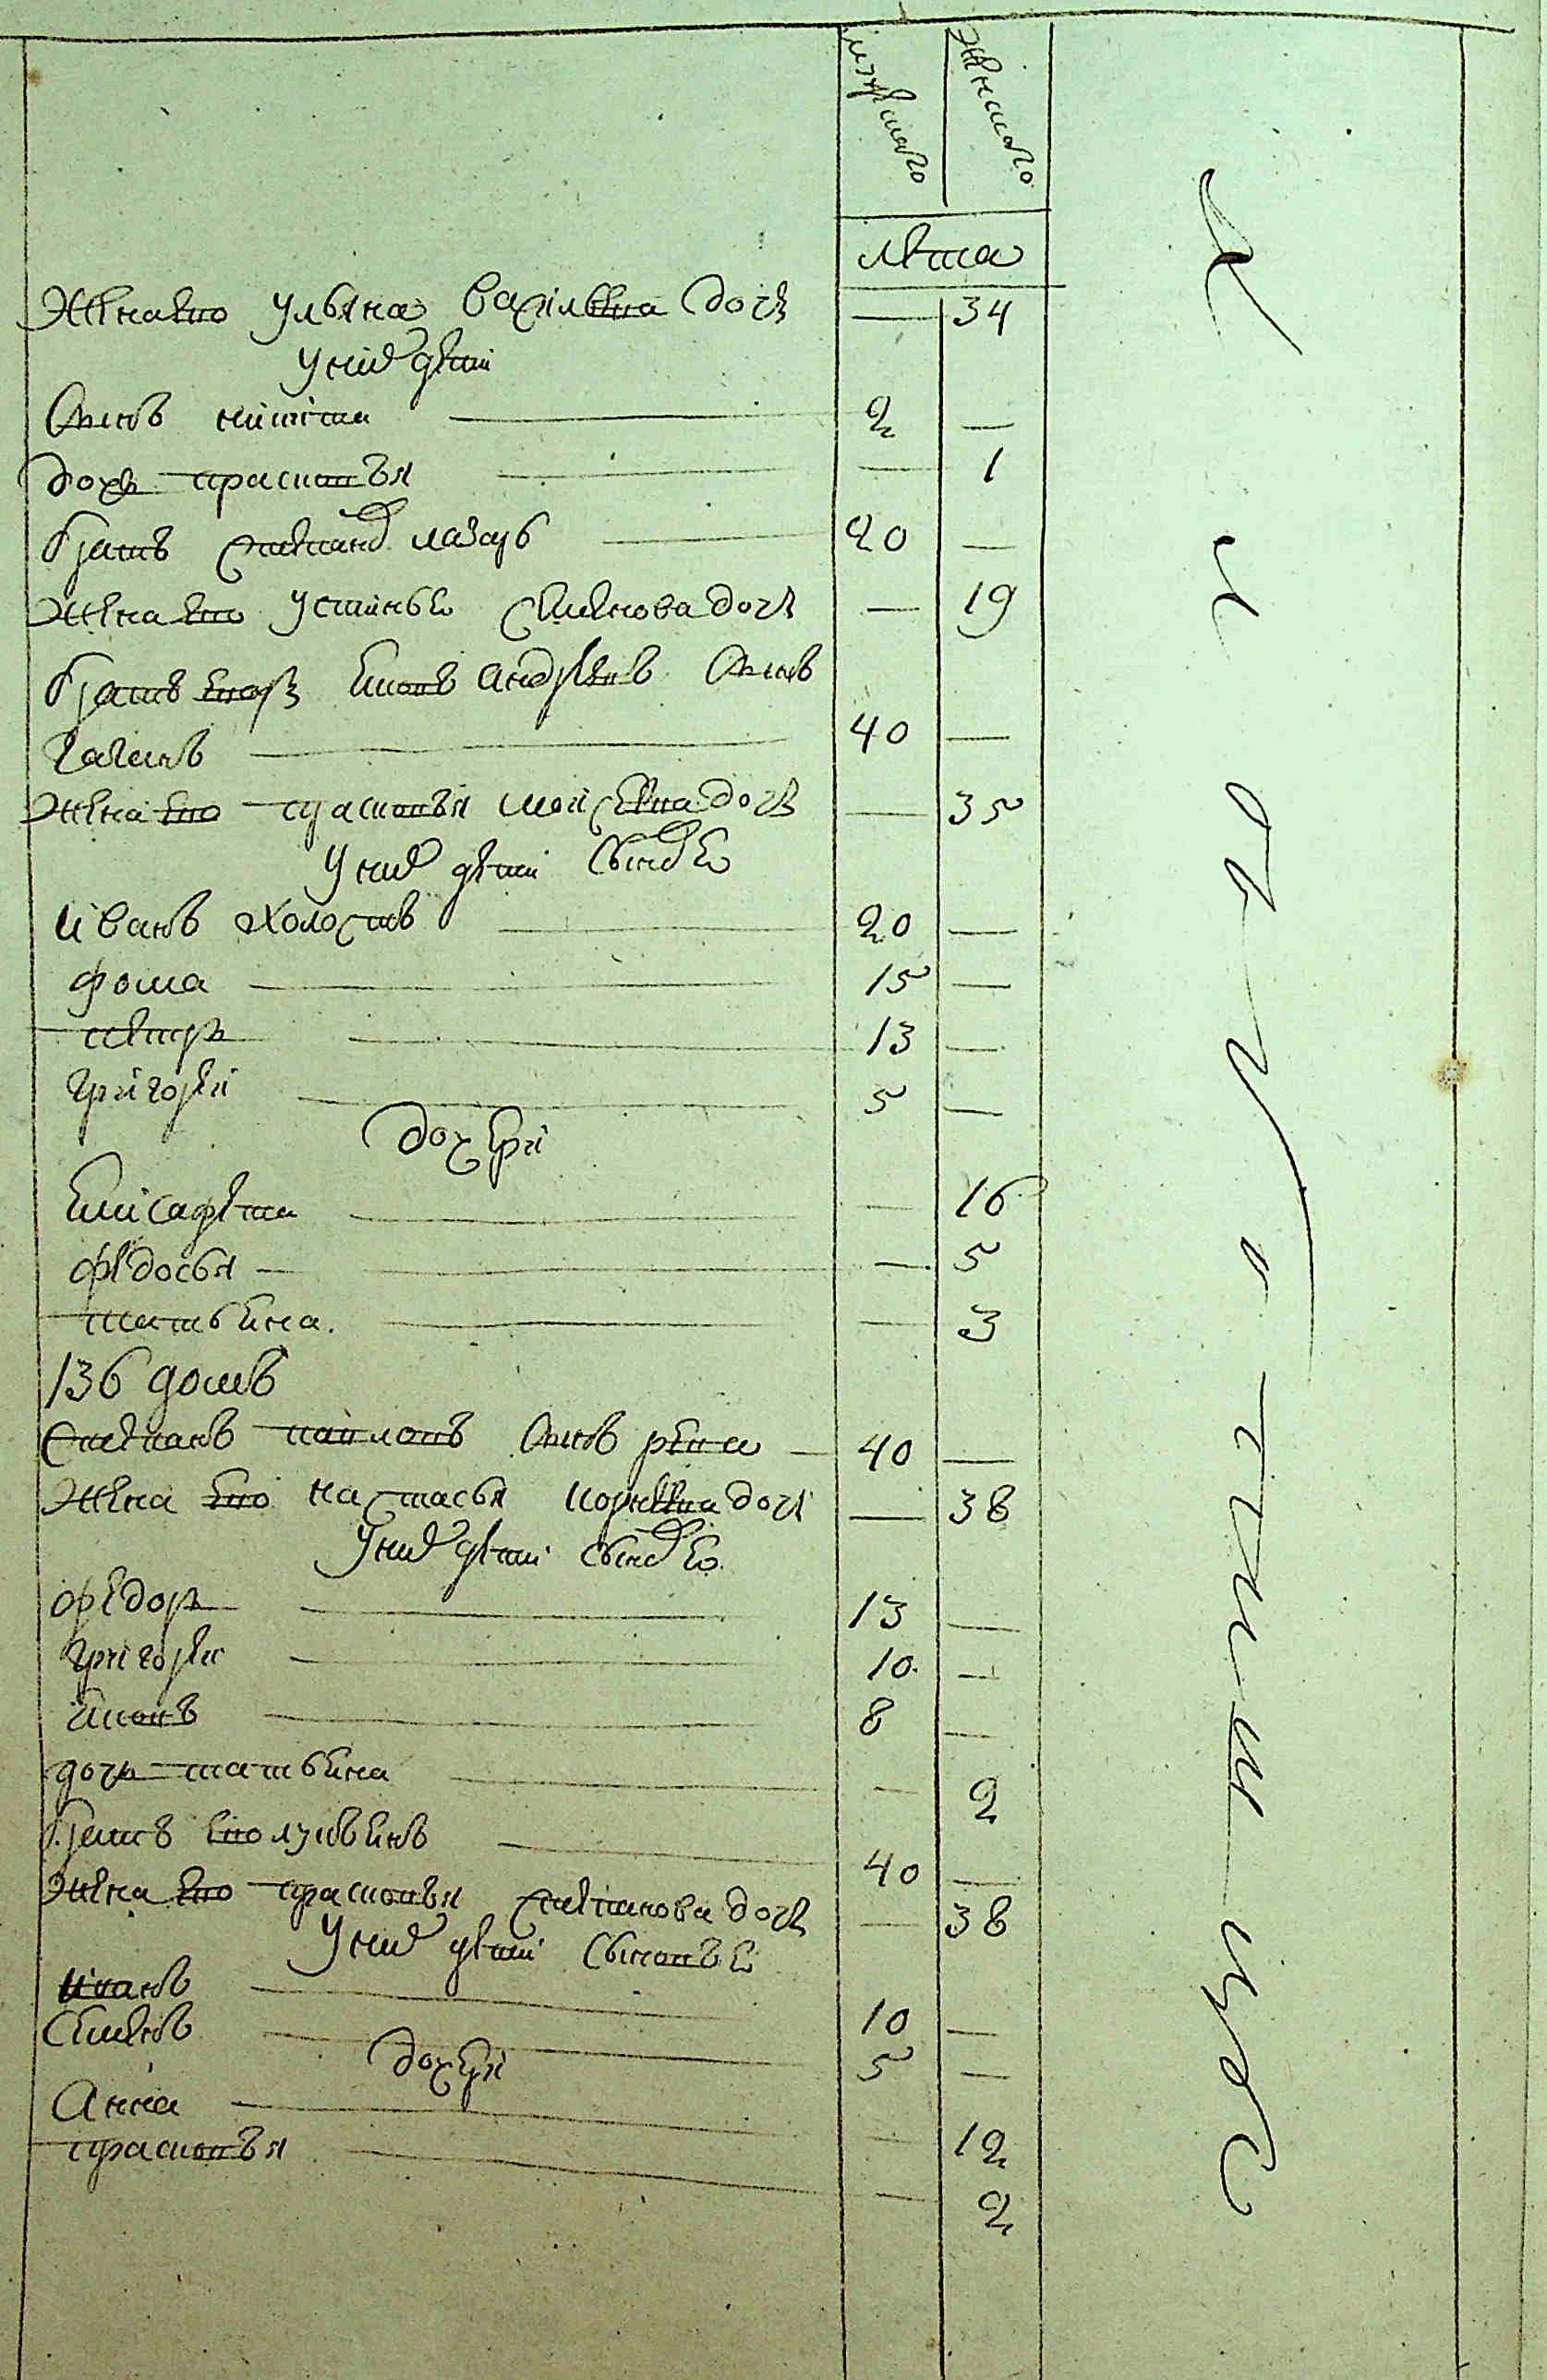 мужеска женска
лѣта
Жена его ульяна василева дочь 34
у них дѣти
Сынъ никита 2
дочь прасковья 1
братъ степана лазарь 20
Жена его устинья семенова дочь 19
братъ Яковъ андреевъ Сынъ
40
Жена его прасковья моисеева дочь 35
у них дѣти Сынове
иванъ холостъ 20
фома 15
петръ 13
григорей 5
дочери
Елисафета 16
федосья 5
татьяна 3
136 домъ
Степанъ павловъ Сынъ 40
Жена его настасья корнеева дочь 38
у них дѣти Сынове
федоръ 13
григорей 10
Яковъ 8
дочь татьяна 2
братъ его лукьянъ 40
Жена его прасковья степанова дочь 38
у них дѣти Сыновье
иванъ 10
Семенъ 5
дочери
Анна 12
прасковья 2